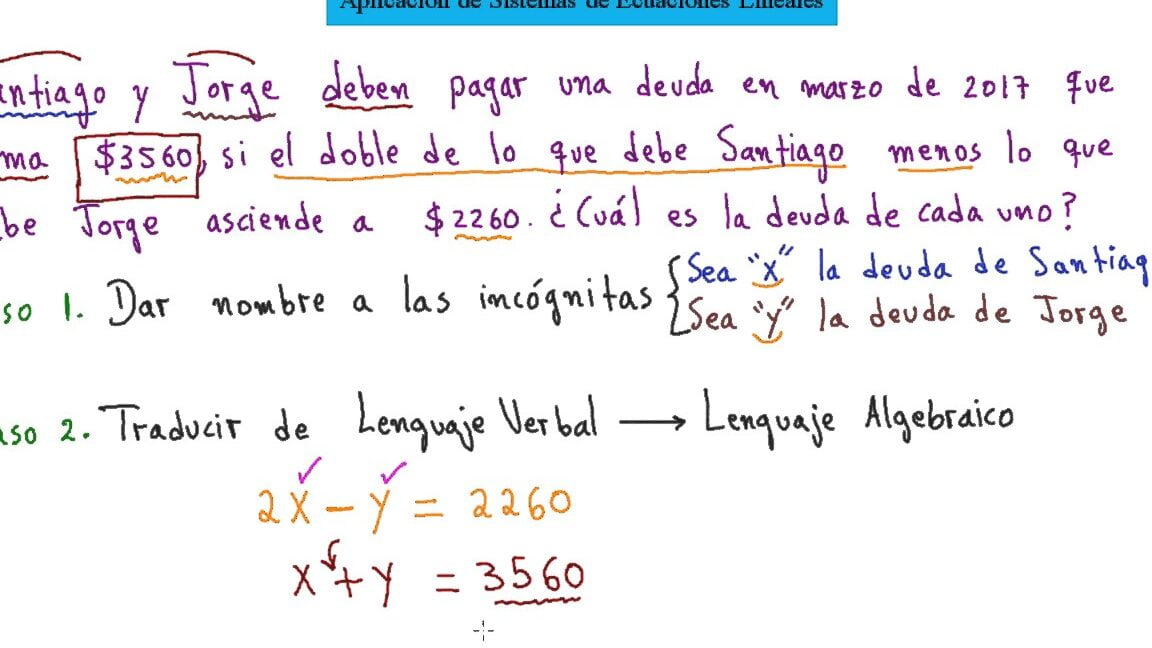 Aplicación de Sistemas de Ecuaciones Lineales
ntiago y Jorge deben pagar una deuda en marzo de 2017 que
ma $3560, si el doble de lo que debe Santiago menos lo que
be Jorge asciende a $2260. ¿Cuál es la deuda de cada uno?
so 1. Dar nombre a las incógnitas { Sea "x" la deuda de Santiag
Sea "y" la deuda de Jorge
aso 2. Traducir de Lenguaje Verbal → Lenguaje Algebraico
2x - y = 2260
x + y = 3560